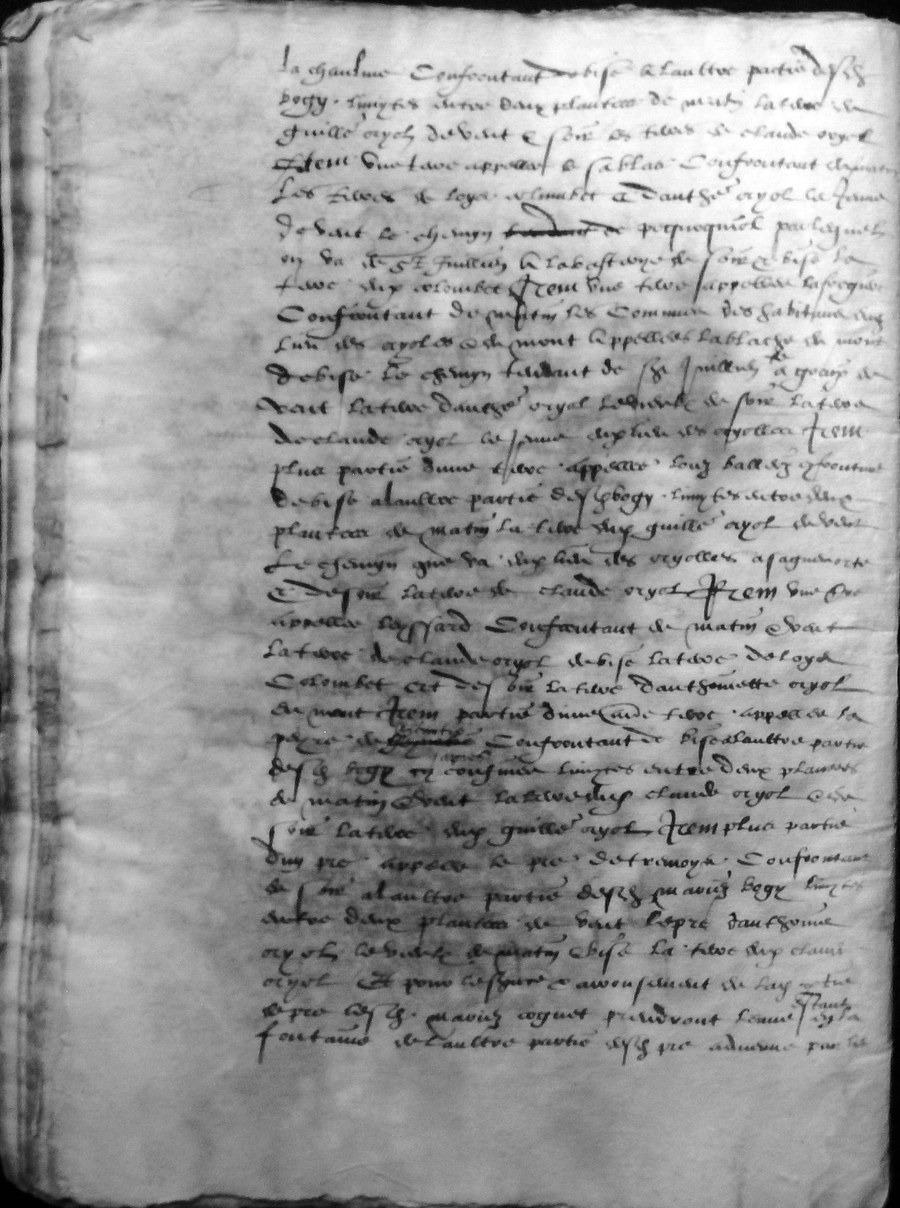 la chaulme Confrontant de bise a laultre partie desd
bogy limytes entre deux plantees de matin la terre de
guille oryol de vent & soir les terres de claude oryol
Item une terre appellee le sablas Confrontant de matin
Les terres de loys colombet & danthe oryol le Jeune
de vent le chemyn tendant de pequequiol par lequel
on va de St Jullien a labastroye de soir & bise la
terre dux colombet Item une terre appellee lasecque
Confrontant de matin les Commun des habitans dug
lieu des oryoles de mont appelles lablache du mont
de bise le chemyn tendant de St Jullien a de
vent la terre danthe oryol levieulx de soir la terre
de claude oryol le Jeune dux lieu des oryolles Item
plus partie dune terre appellee louz balledz confrontant
de bise a laultre partie desd bogy limytes entre deux
plantees de matin la terre dux guille oryol de vent
Le chemyn que va dux lieu des oryolles a saguemorte
& de soir la terre de claude oryol Item une terre
appellee leyssard Confrontant de matin & vent
la terre de claude oryol de bise la terre de loys
Colombet et de soir la terre danthoinette oryol
de mont Item partie dune terre appellee la
peyre de Confrontant de bise a laultre partie
desd bogy et cognet limytes entre deux plantees
de matin & vent la terre dux claude oryol & de
soir la terre dux guille oryol Item plus partie
dun pre appelle le pre detremoye Confrontant
de soir a laultre partie desd mariez bogy limytes
entre deux plantees de vent le pre danthoine
oryol le vieulx de matin & bise la terre dux claude
oryol Et pour & arousement de lad partie
de pre lesd mariez cognet prendront leaue estant en la
fontaine de laultre partie desd pre advenue par le